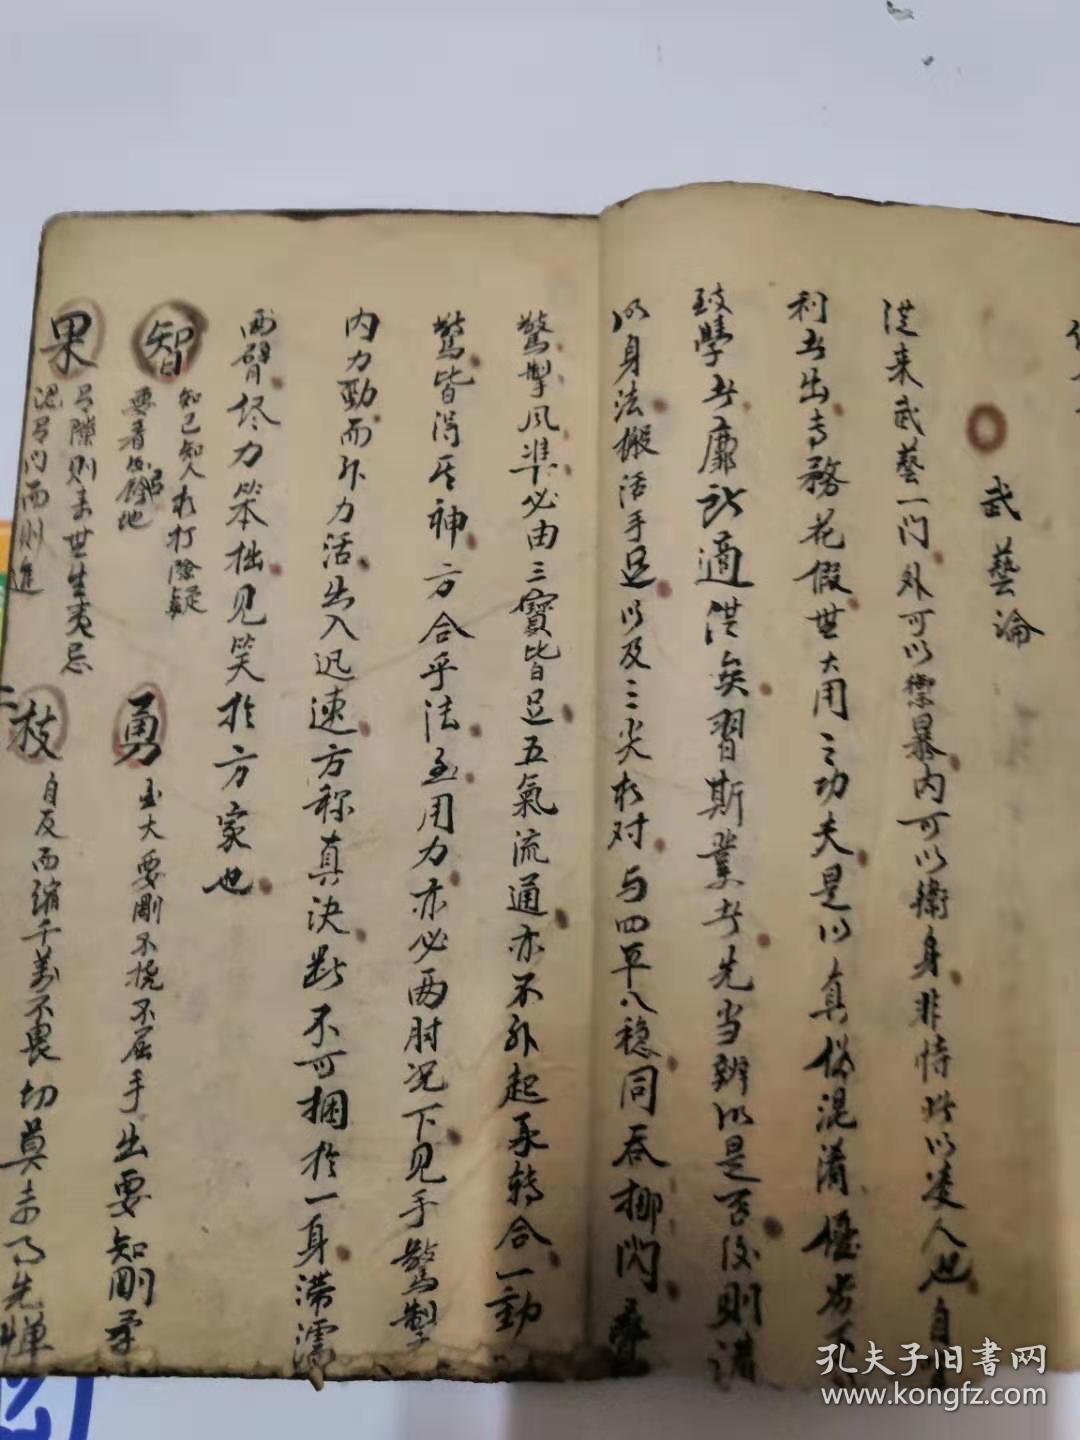 武藝論
從来武藝一门外可以禦暴内可以衛身非恃此以凌人也自
利者出专務花假無大用之功夫是以真偽混淆優劣不
致學者靡所適從矣習斯業者先当辨以是否後則講
以身法搬活手足以及三尖相对与四平八穩同吞挪閃
驚掣風準必由三寶皆足五氣流通亦不外起承转合一動
驚皆得其神方合乎法至用力亦必两肘况下见手驚掣
内力勁而外力活出入迅速方称真決断不可捆於一身滞濡
两臂尽力笨拙见笑於方家也
智 知己知人相打除疑
要看
餘地
勇 至大要剛不撓不屈手出要知剛柔
果 有隙则
無生
忌
门而则進
技 自反而縮千萬不畏切莫未
先惮
孔夫子旧书网
www.kongfz.com